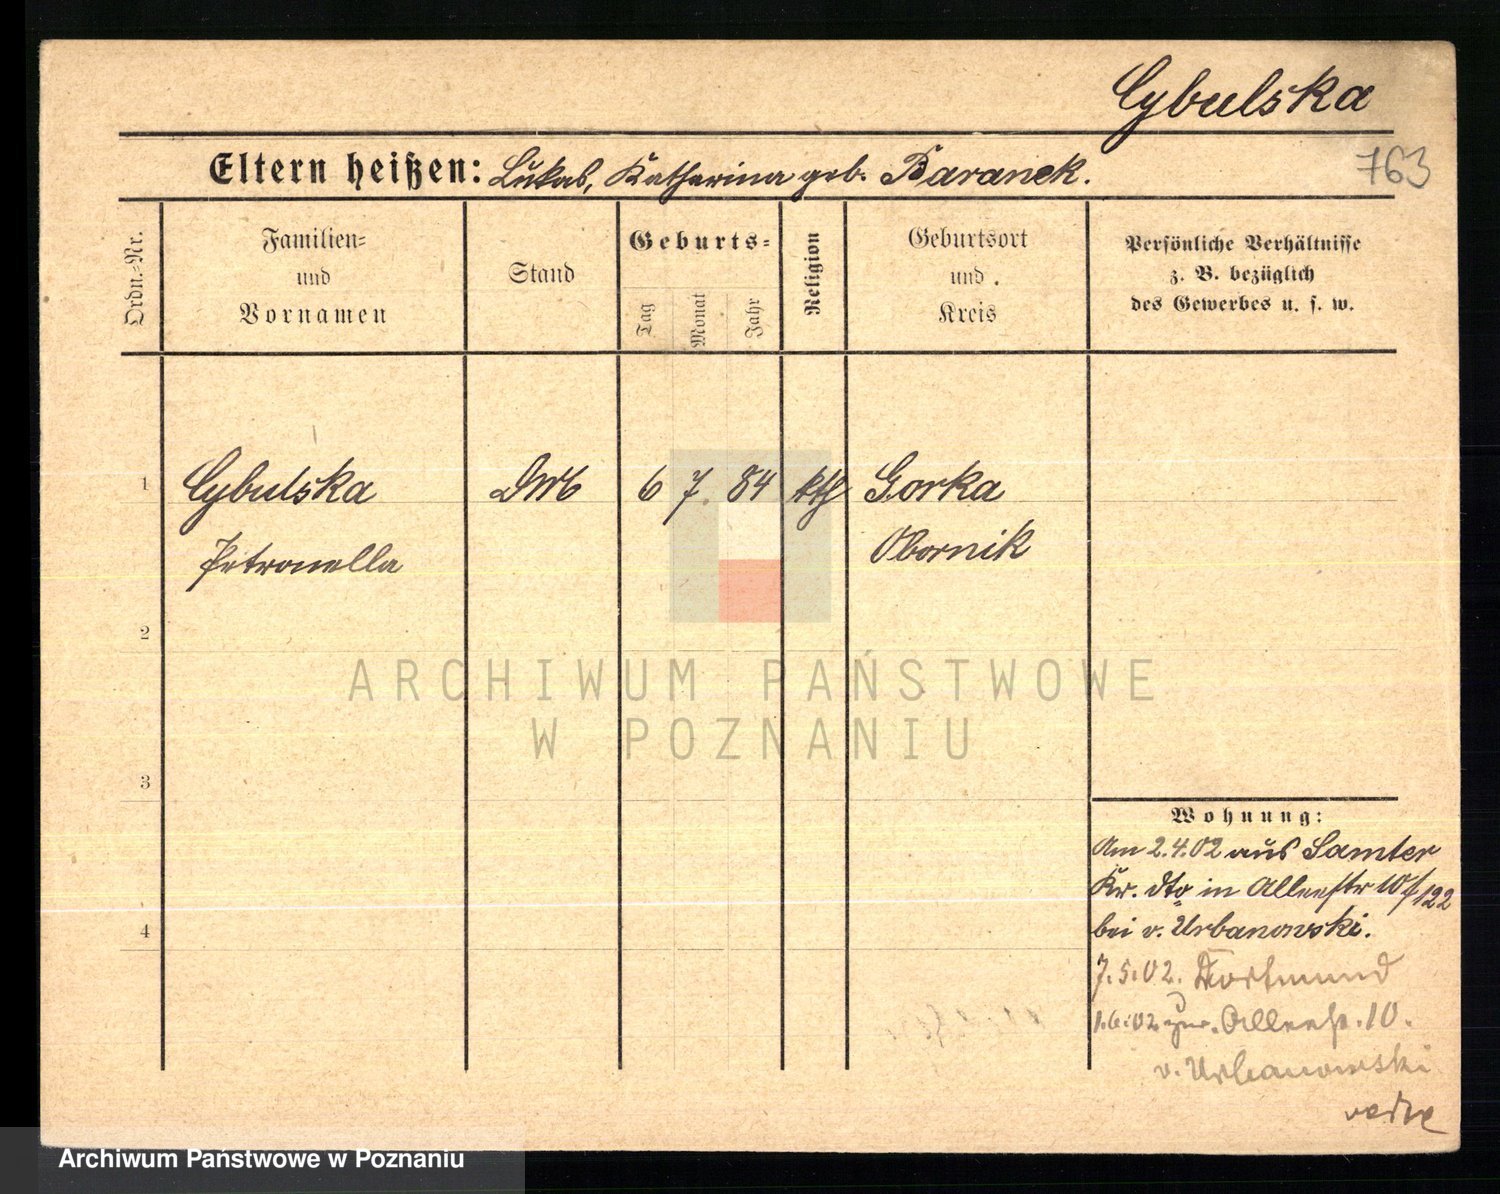 Cybulska
763
Eltern heißen: Lukas, Katharina geb. Baranek.
Ordn.-Nr.
Familien-
und
Vornamen
Stand
Geburts-
Tag
Monat
Jahr
Religion
Geburtsort
und
Kreis
Persönliche Verhältnisse
z. B. bezüglich
des Gewerbes u. s. w.
1 Cybulska 6 7. 84 kth Gorka
Petronella Obornik
2
3
4
Wohnung:
Am 2.4.02 aus Samter
Kr. dto in Alleestr 10 /122
bei v. Urbanowski.
7.5.02. Dortmund
1.6.02 zur. Alleestr. 10.
v. Urbanowski
ARCHIWUM PAŃSTWOWE
W POZNANIU
Archiwum Państwowe w Poznaniu